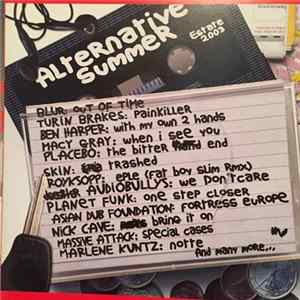 Alternative
Summer
Estate
2003
BLUR: OUT OF TIME
TURIN BRAKES: PAINKILLER
BEN HARPER: with my own 2 hands
MACY GRAY: when i see you
PLACEBO: the bitter end
SKIN: trashed
ROYKSOPP: eple (fat boy slim Rmx)
AUDIOBULLYS: we don't care
PLANET FUNK: one step closer
ASIAN DUB FOUNDATION: FORTRESS EUROPE
NICK CAVE: bring it on
MASSIVE ATTACK: special cases
MARLENE KUNTZ: notte
And many more...